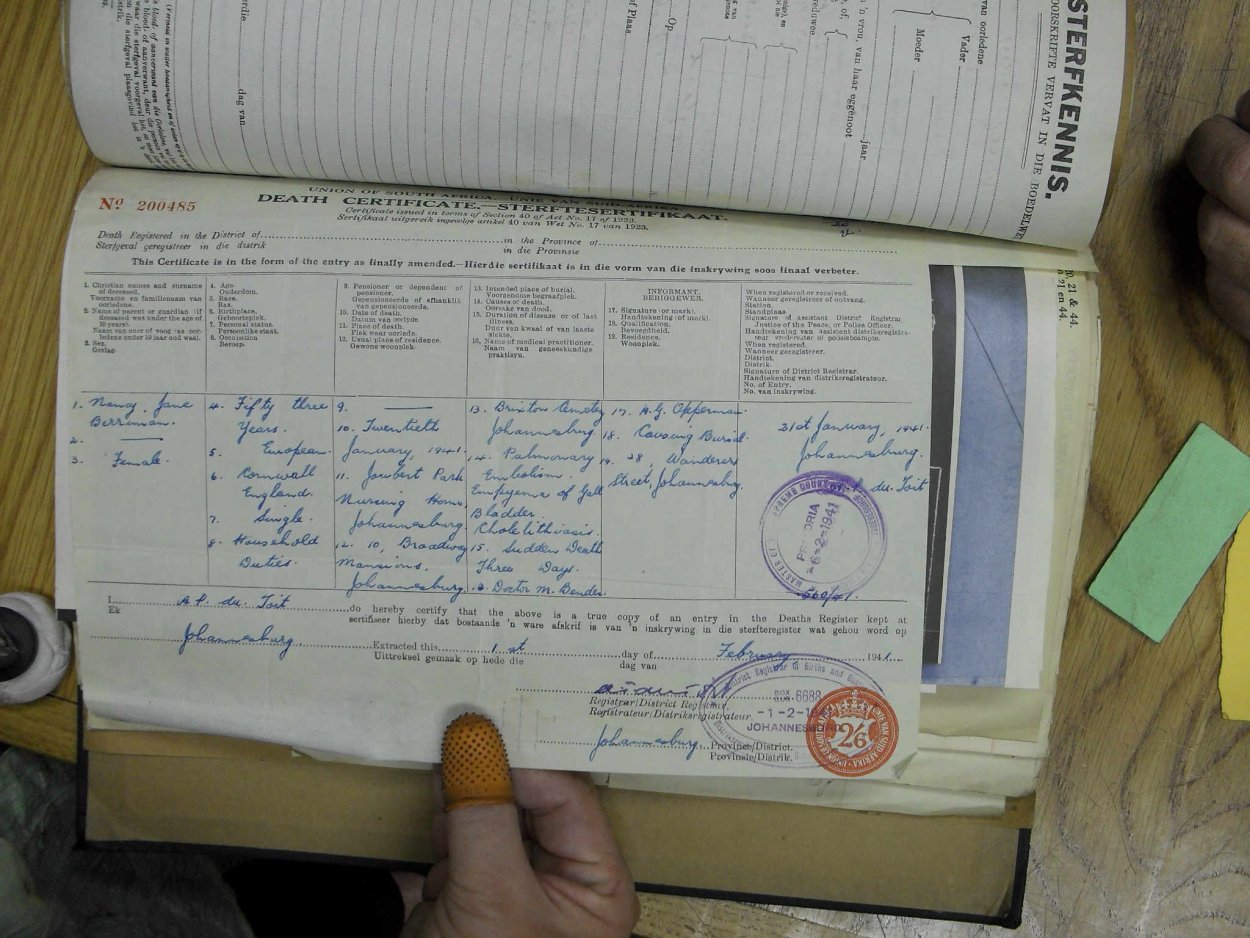 STERFKENNIS-
OORSKRIFTE VERVAT IN DIE BOEDELWE
van oorledene
Vader
Moeder
'n vrou, van haar eggenoot
jaar
Op
of Plaas
dag van
10, 21 & 44.
UNION OF SOUTH AFRICA—UNIE VAN SUID-AFRIKA
Nº 200485
DEATH CERTIFICATE.—STERFTESERTIFIKAAT.
Certificate issued in terms of Section 40 of Act No. 17 of 1923.
Sertifikaat uitgereik ingevolge artikel 40 van Wet No. 17 van 1923.
Death Registered in the District of in the Province of
Sterfgeval geregistreer in die distrik in die Provinsie
This Certificate is in the form of the entry as finally amended.—Hierdie sertifikaat is in die vorm van die inskrywing soos finaal verbeter.
1. Christian names and surname
of deceased.
Voorname en familienaam van
oorledene.
2. Name of parent or guardian (if
deceased was under the age of
10 years).
Naam van ouer of voog (as oor-
ledene onder 10 jaar oud was).
3. Sex.
Geslag.
4. Age.
Ouderdom.
5. Race.
Ras.
6. Birthplace.
Geboorteplek.
7. Personal status.
Persoonlike staat.
8. Occupation
Beroep.
9. Pensioner or dependent of
pensioner.
Gepensioeneerde of afhanklik
van gepensioeneerde.
10. Date of death.
Datum van oorlyde.
11. Place of death.
Plek waar oorlede.
12. Usual place of residence.
Gewone woonplek.
13. Intended place of burial.
Voorgenome begraafplek.
14. Causes of death.
Oorsake van dood.
15. Duration of disease or of last
illness.
Duur van kwaal of van laaste
siekte.
16. Name of medical practitioner.
Naam van geneeskundige
praktisyn.
INFORMANT.
BERIGGEWER.
17. Signature (or mark).
Handtekening (of merk).
18. Qualification.
Bevoegdheid.
19. Residence.
Woonplek.
When registered or received.
Wanneer geregistreer of ontvang.
Station.
Standplaas.
Signature of Assistant District Registrar
Justice of the Peace, or Police Officer.
Handtekening van assistent distriksregistra-
teur vrederegter of polisiebeampte.
When registered.
Wanneer geregistreer.
District.
Distrik.
Signature of District Registrar.
Handtekening van distriksregistrateur.
No. of Entry.
No. van inskrywing.
1. Nancy Jane
Berriman.
2. —
3. Female.
4. Fifty three
Years.
5. European.
6. Cornwall
England.
7. Single.
8. Household
Duties.
9. —
10. Twentieth
January, 1941.
11. Joubert Park
Nursing Home
Johannesburg.
12. 10, Broadway
Mansions.
Johannesburg.
13. Brixton Cemetery
Johannesburg.
14. Pulmonary
Embolism.
Empyema of Gall
Bladder.
Cholelithiasis.
15. Sudden Death
Three Days.
Doctor M. Bender
17. A.G. Opperman.
18. Causing Burial.
19. 28, Wanderers
Street, Johannesburg.
21st January, 1941.
Johannesburg.
du. Toit
MASTER OF SUPREME COURT
PRETORIA
-6-2-1941
560/41.
I A.P. du. Toit do hereby certify that the above is a true copy of an entry in the Deaths Register kept at
Ek sertifiseer hierby dat bostaande 'n ware afskrif is van 'n inskrywing in die sterfteregister wat gehou word op
Johannesburg Extracted this 1st day of February 1941.
Uittreksel gemaak op hede die dag van
Registrar/District Registrar.
Registrateur/Distriksregistrateur.
District Registrar of Births and
BOX 6688
-1-2-
JOHANNESBURG
Johannesburg Province/District.
Provinsie/Distrik.
UNIE VAN SUID AFRIKA
2/6